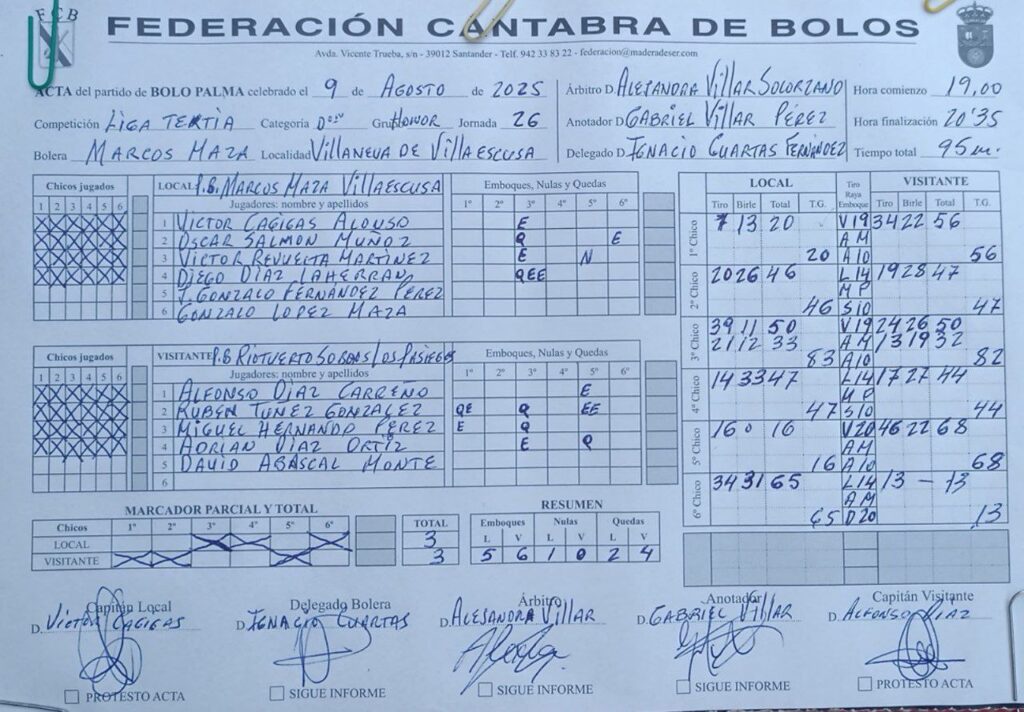 FCB
FEDERACIÓN CANTABRA DE BOLOS
Avda. Vicente Trueba, s/n - 39012 Santander - Telf. 942 33 83 22 - federacion@maderadeser.com
ACTA del partido de BOLO PALMA celebrado el 9 de AGOSTO de 2025
Competición LIGA TERTIA Categoría Grupo HONOR Jornada 26
Bolera MARCOS MAZA Localidad VILLANEUA DE VILLAESCUSA
Árbitro D. ALEJANDRA VILLAR SOLORZANO
Anotador D. GABRIEL VILLAR PÉREZ
Delegado D. IGNACIO CUARTAS FERNÁNDEZ
Hora comienzo 19,00
Hora finalización 20'35
Tiempo total 95 m.
Chicos jugados LOCAL P.B. MARCOS MAZA VILLAESCUSA Emboques, Nulas y Quedas
1 2 3 4 5 6 Jugadores: nombre y apellidos 1º 2º 3º 4º 5º 6º
1 VICTOR CAGIGAS ALONSO E
2 OSCAR SALMON MUÑOZ Q E
3 VICTOR REVUELTA MARTINEZ E N
4 DIEGO DÍAZ LAHERRAN QEE
5 J. GONZALO FERNÁNDEZ PEREZ
6 GONZALO LOPEZ MAZA
Chicos jugados VISITANTE P.B RIOTUERTO SOBAOS LOS PASIEGOS Emboques, Nulas y Quedas
1 2 3 4 5 6 Jugadores: nombre y apellidos 1º 2º 3º 4º 5º 6º
1 ALFONSO DÍAZ CARREÑO E
2 RUBEN TUNEZ GONZALEZ QE Q EE
3 MIGUEL HERNANDO PEREZ E Q
4 ADRIAN DIAZ ORTIZ E Q
5 DAVID ABASCAL MONTE
6
MARCADOR PARCIAL Y TOTAL
Chicos 1º 2º 3º 4º 5º 6º TOTAL
LOCAL 3
VISITANTE 3
RESUMEN
Emboques Nulas Quedas
L V L V L V
5 6 1 0 2 4
LOCAL Tiro Raya Emboque VISITANTE
Tiro Birle Total T.G. Tiro Birle Total T.G.
1º Chico 7 13 20 V19 34 22 56
AM
20 A10 56
2º Chico 20 26 46 L14 19 28 47
MP
46 S10 47
3º Chico 39 11 50 V19 24 26 50
21 12 33 AM 13 19 32
83 A10 82
4º Chico 14 33 47 L14 17 27 44
MP
47 S10 44
5º Chico 16 0 16 V20 46 22 68
AM
16 A10 68
6º Chico 34 31 65 L14 13 - 13
AM
65 D20 13
Capitán Local
D. VICTOR CAGIGAS
PROTESTO ACTA
Delegado Bolera
D. IGNACIO CUARTAS
SIGUE INFORME
Árbitro
D. ALEJANDRA VILLAR
SIGUE INFORME
Anotador
D. GABRIEL VILLAR
SIGUE INFORME
Capitán Visitante
D. ALFONSO DIAZ
PROTESTO ACTA